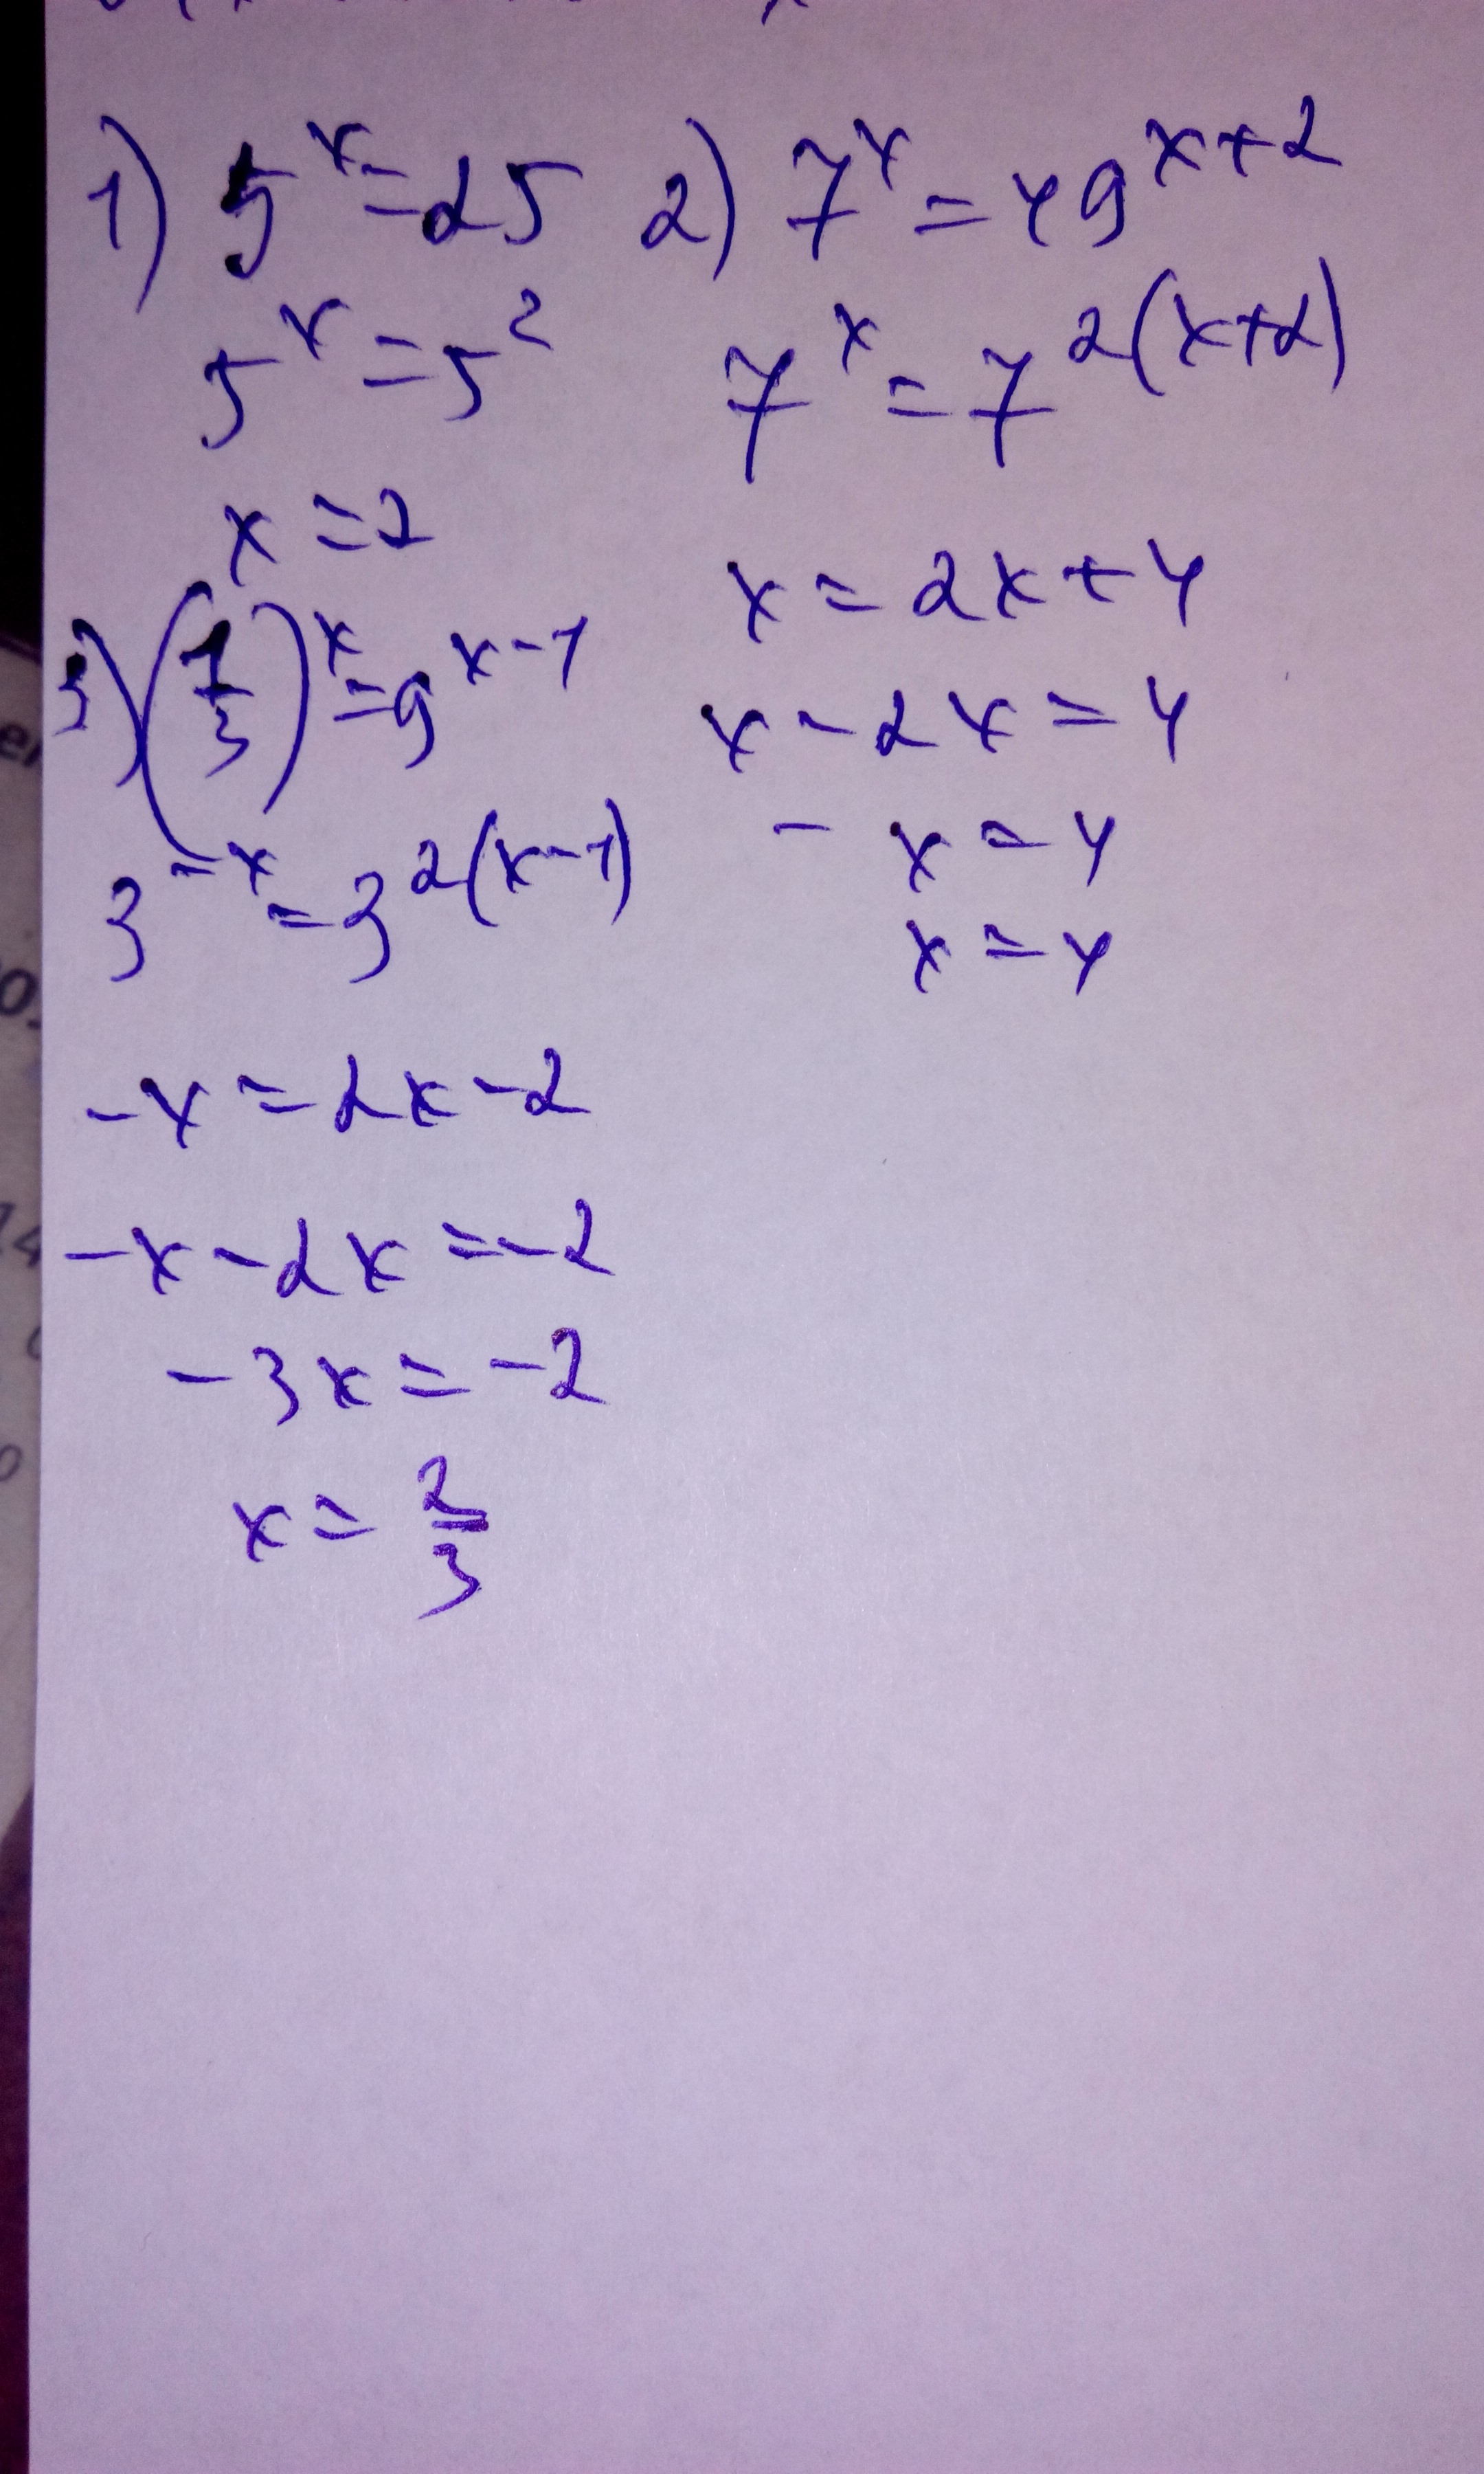 1) 5^x = 25
5^x = 5^2
x = 2
2) 7^x = 49^{x+2}
7^x = 7^{2(x+2)}
x = 2x + 4
x - 2x = 4
- x = 4
x = 4
3) (1/3)^x = 9^{x-1}
3^{-x} = 3^{2(x-1)}
-x = 2x - 2
-x - 2x = -2
-3x = -2
x = 2/3